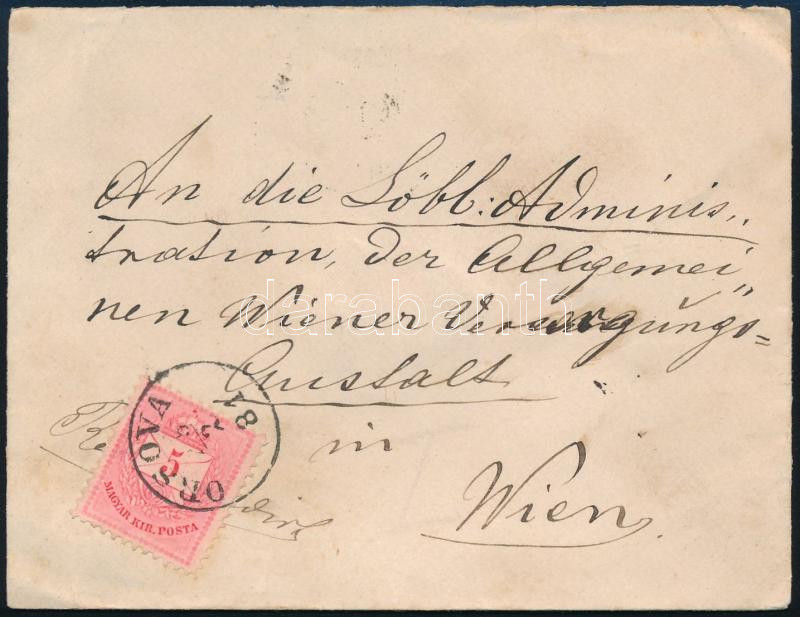 An die Löbl: Adminis„
tration, der Allgemei„
nen Wiener Versorgungs=
Anstalt
in
Wien.
ORSOVA
81
5
MAGYAR KIR. POSTA
darabanth